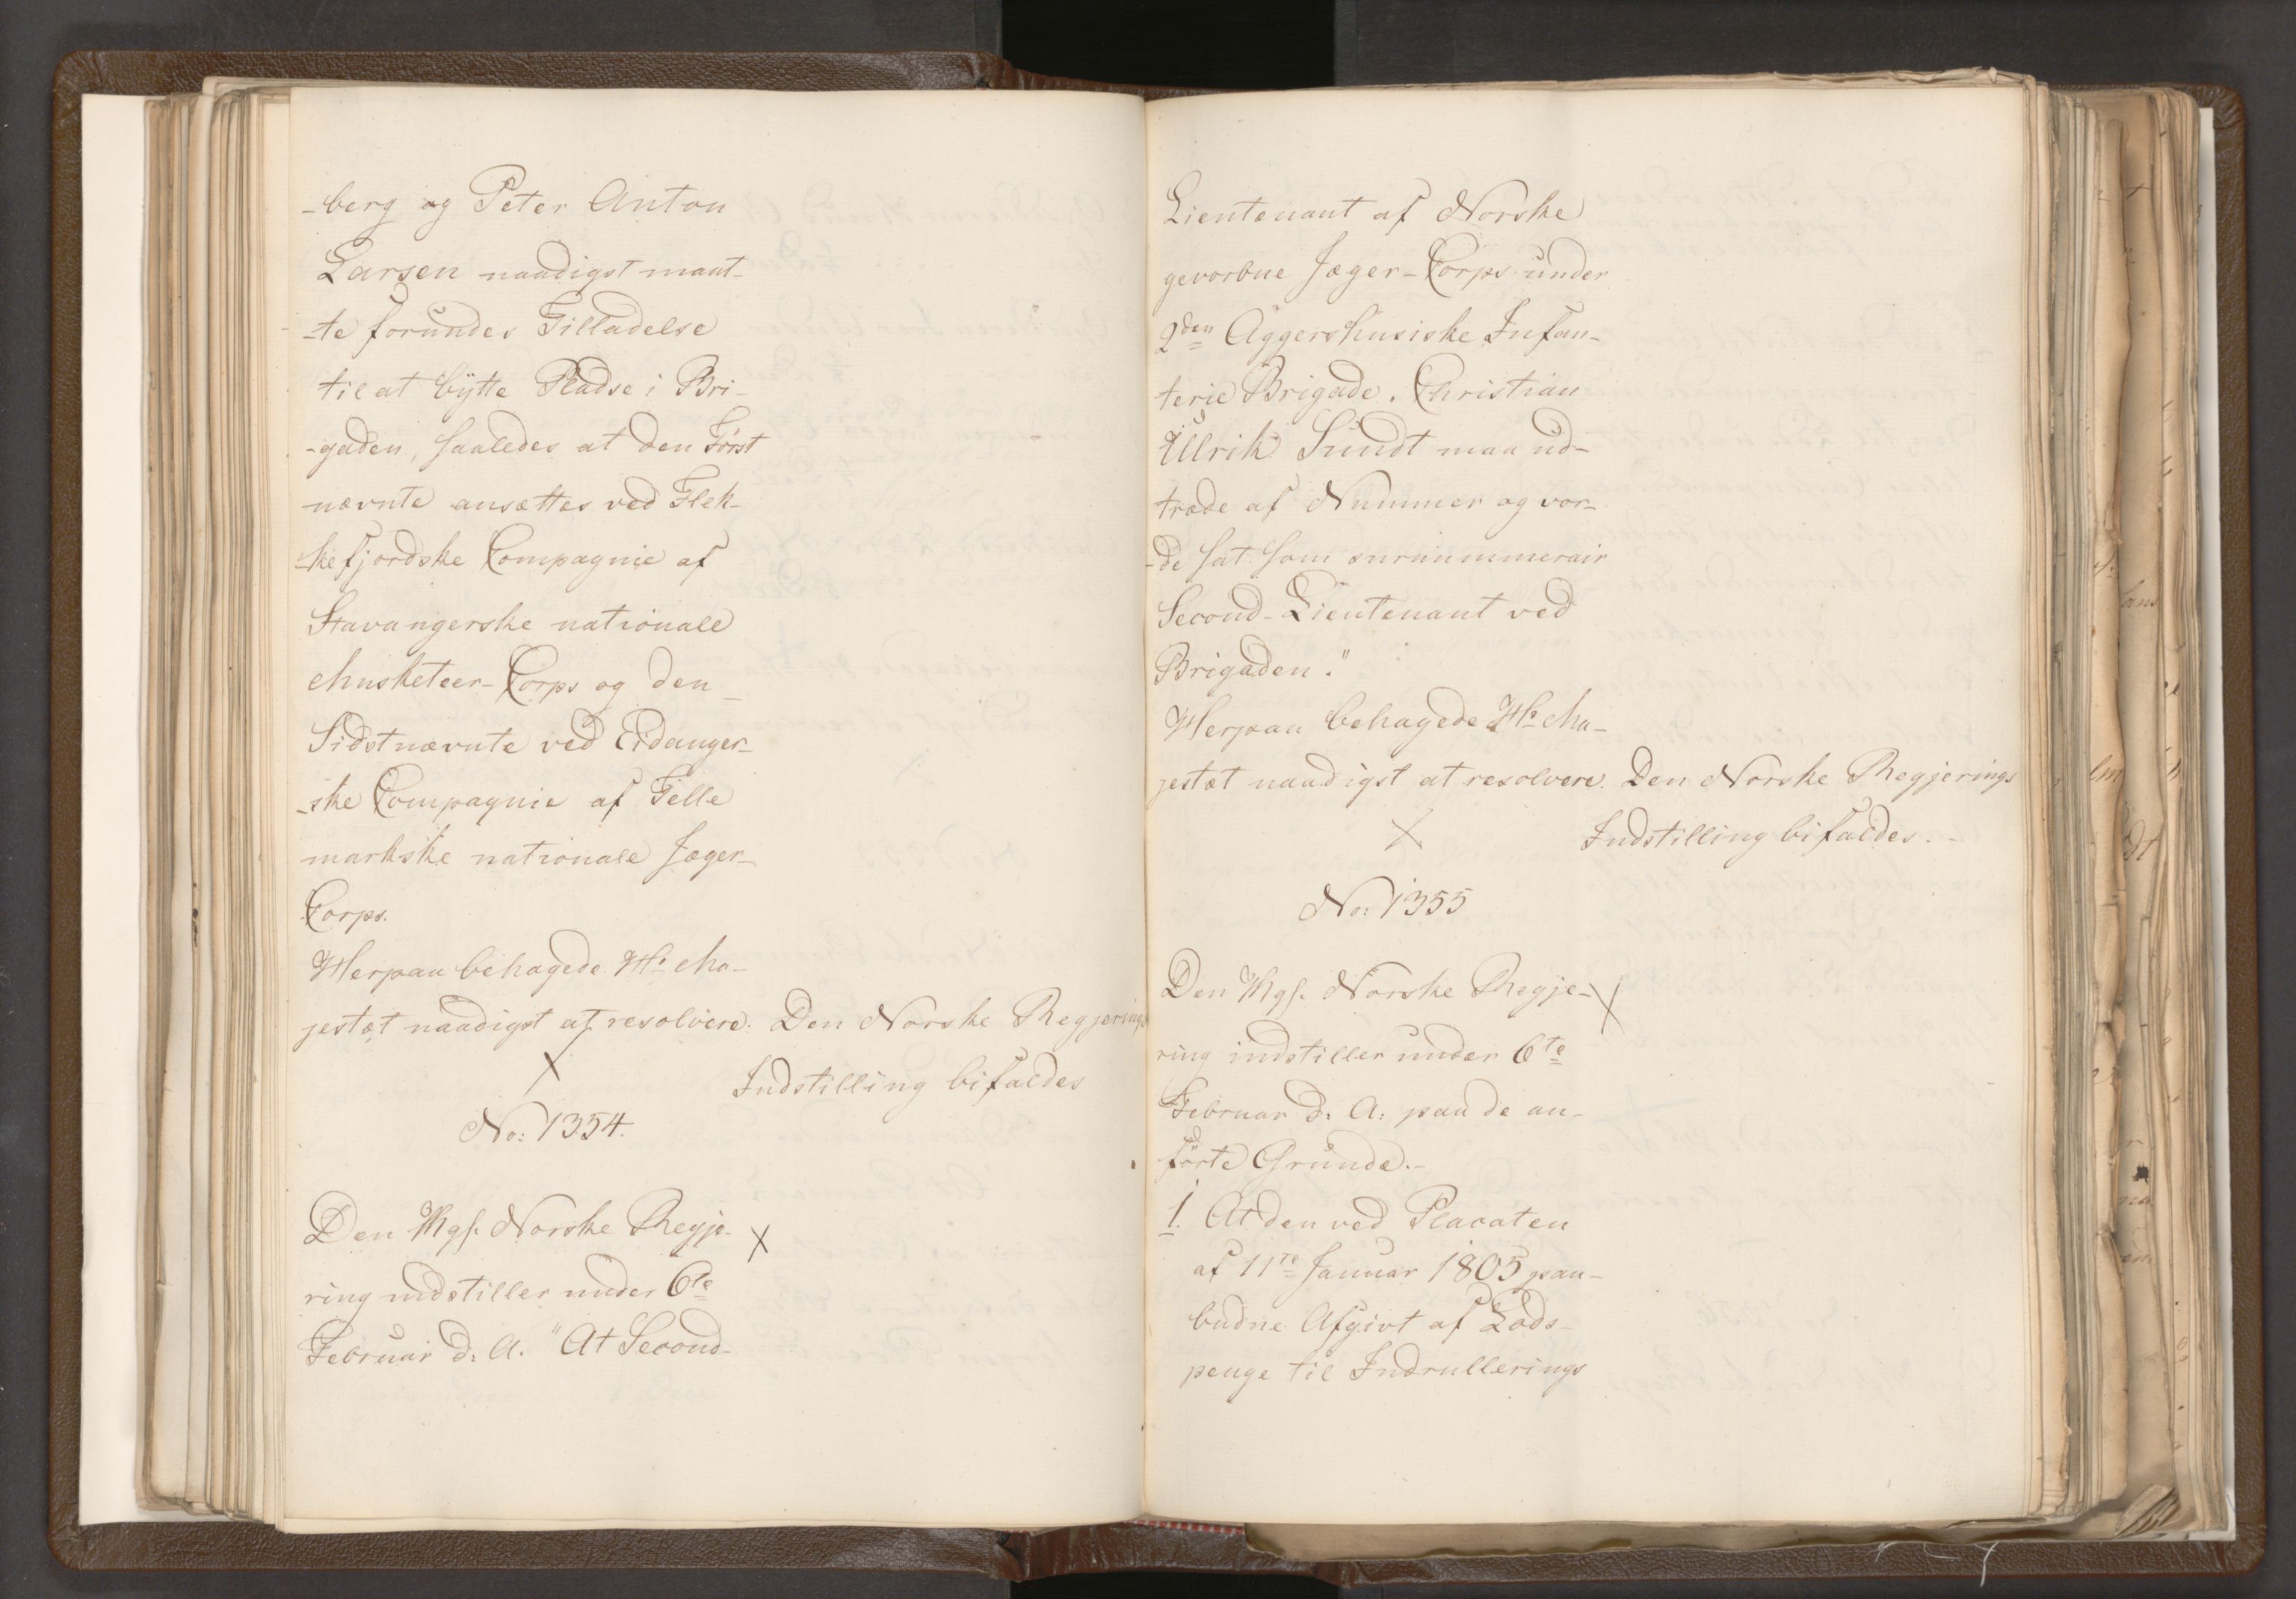 -berg og Peter Anton
Larsen naadigst maat-
-te forundes Tilladelse
til at bÿtte Pladse i Bri-
-gaden, saaledes at den Först
nævnte ansættes ved Flek-
-kefjordske Compagnie af
Stavangerske nationale
Musketeer-Corps og den
Sidstnævnte ved Eidanger-
-ske Compagnie af Telle
markske nationale Jæger-
Corps.
Herpaa behagede Hs Ma-
jestæt naadigst at resolvere: Den Norske Regjerings
Indstilling bifaldes
No: 1354.
Den Kgs. Norske Regje-
ring indstiller under 6te
Februar d: A. "At Second-
Lieutenant af Norske
gevorbne Jæger-Corps under
2den Aggershusiske Infan-
terie Brigade. Christian
Ulrik Sundt maa ud-
træde af Nummer og vor-
-de sat som surnummerair
Second-Lieutenant ved
Brigaden."
Herpaa behagede Hs Ma-
jestæt naadigst at resolvere. Den Norske Regjerings
Indstilling bifaldes.-
No: 1355
Den Kgs. Norske Regje-
ring indstiller under 6te
Februar d: A: paa de an-
förte Grunde.-
1. At den ved Placaten
af 11te Januar 1805 paa-
budne Afgivt af Lods-
penge til Indrullerings